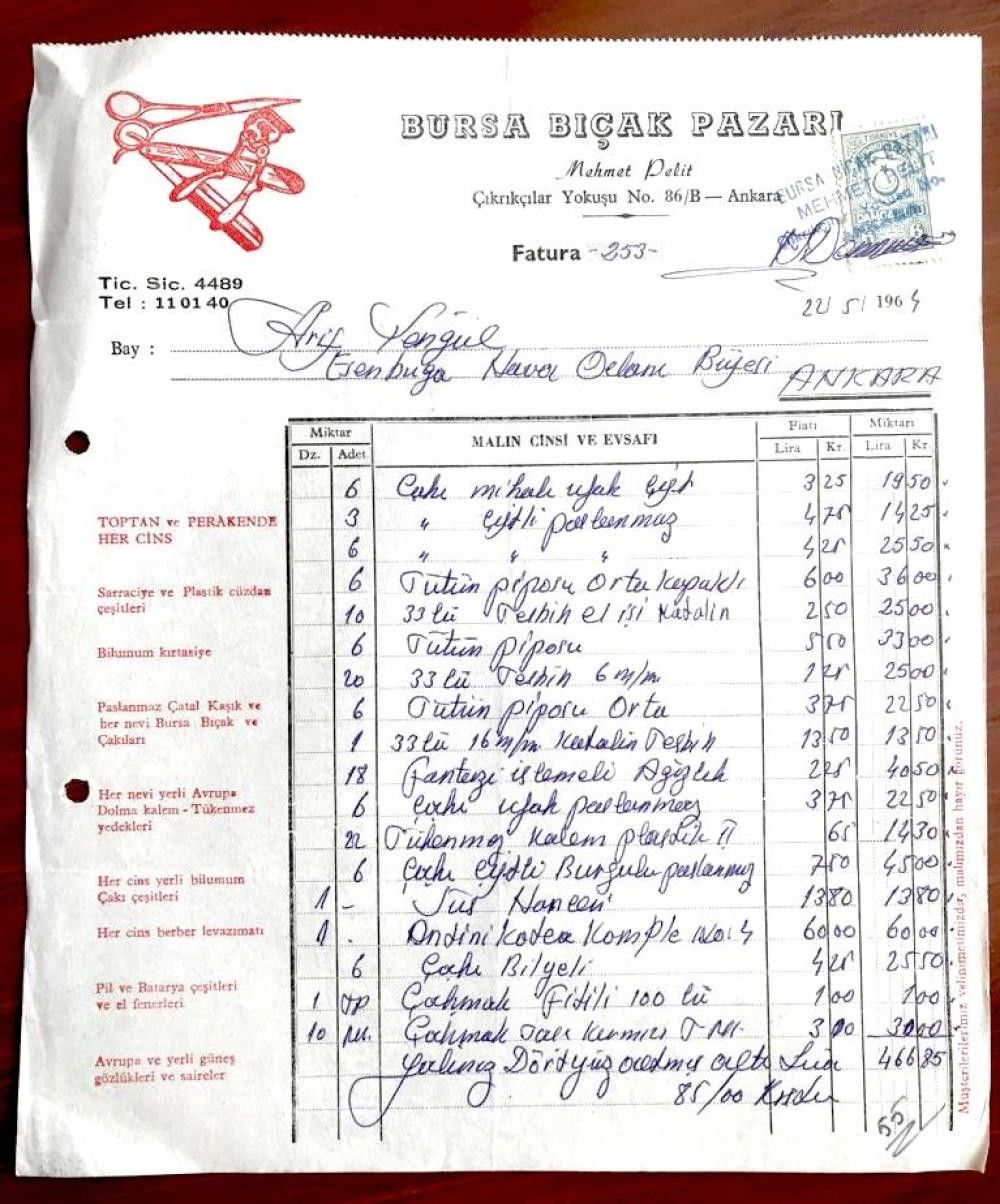 BURSA BIÇAK PAZARI
Mehmet Pelit
Çıkrıkçılar Yokuşu No. 86/B — Ankara
BURSA BIÇAK PAZARI
MEHMET PELİT
Fatura -253-
Tic. Sic. 4489
Tel : 11 01 40
22/ 5/ 1964
Bay : Arif Yengül
Esenboğa Hava Alanı Büfesi
ANKARA
Miktar MALIN CİNSİ VE EVSAFI Fiatı Miktarı
Dz. Adet Lira Kr. Lira Kr.
6 Çakı mihalı ufak Çeşit 3 25 19 50
3 " Çeşitli paslanmaz 4 75 14 25
6 " " " 4 25 25 50
6 Tütün piposu Orta kapaklı 6 00 36 00
10 33 lü Tesbih el işi Katalin 2 50 25 00
6 Tütün piposu 5 50 33 00
20 33 lü Tesbih 6 m/m 1 25 25 00
6 Tütün piposu Orta 3 75 22 50
1 33 lü 16 m/m Katalin Tesbih 13 50 13 50
18 Fantezi işlemeli Ağızlık 2 25 40 50
6 Çakı ufak paslanmaz 3 75 22 50
22 Tükenmez kalem plastik 65 14 30
6 Çakı Çeşitli Burgulu paslanmaz 7 50 45 00
1 - 13 80 13 80
1 . Komple No: 4 60 00 60 00
6 Çakı Bilyeli 4 25 25 50
1 Çakmak Fitili 100 lü 1 00 1 00
10 Çakmak Taşı kırmızı 3 00 30 00
Yalınız Dörtyüz altmış altı Lira 466 85
85/00 Kuruş
55
TOPTAN ve PERAKENDE
HER CİNS
Sarraciye ve Plastik cüzdan
çeşitleri
Bilumum kırtasiye
Paslanmaz Çatal Kaşık ve
her nevi Bursa Bıçak ve
Çakıları
Her nevi yerli Avrupa
Dolma kalem - Tükenmez
yedekleri
Her cins yerli bilumum
Çakı çeşitleri
Her cins berber levazımatı
Pil ve Batarya çeşitleri
ve el fenerleri
Avrupa ve yerli güneş
gözlükleri ve saireler
Müşterilerilerimiz velinimetimizdir, malımızdan hayır görünüz.